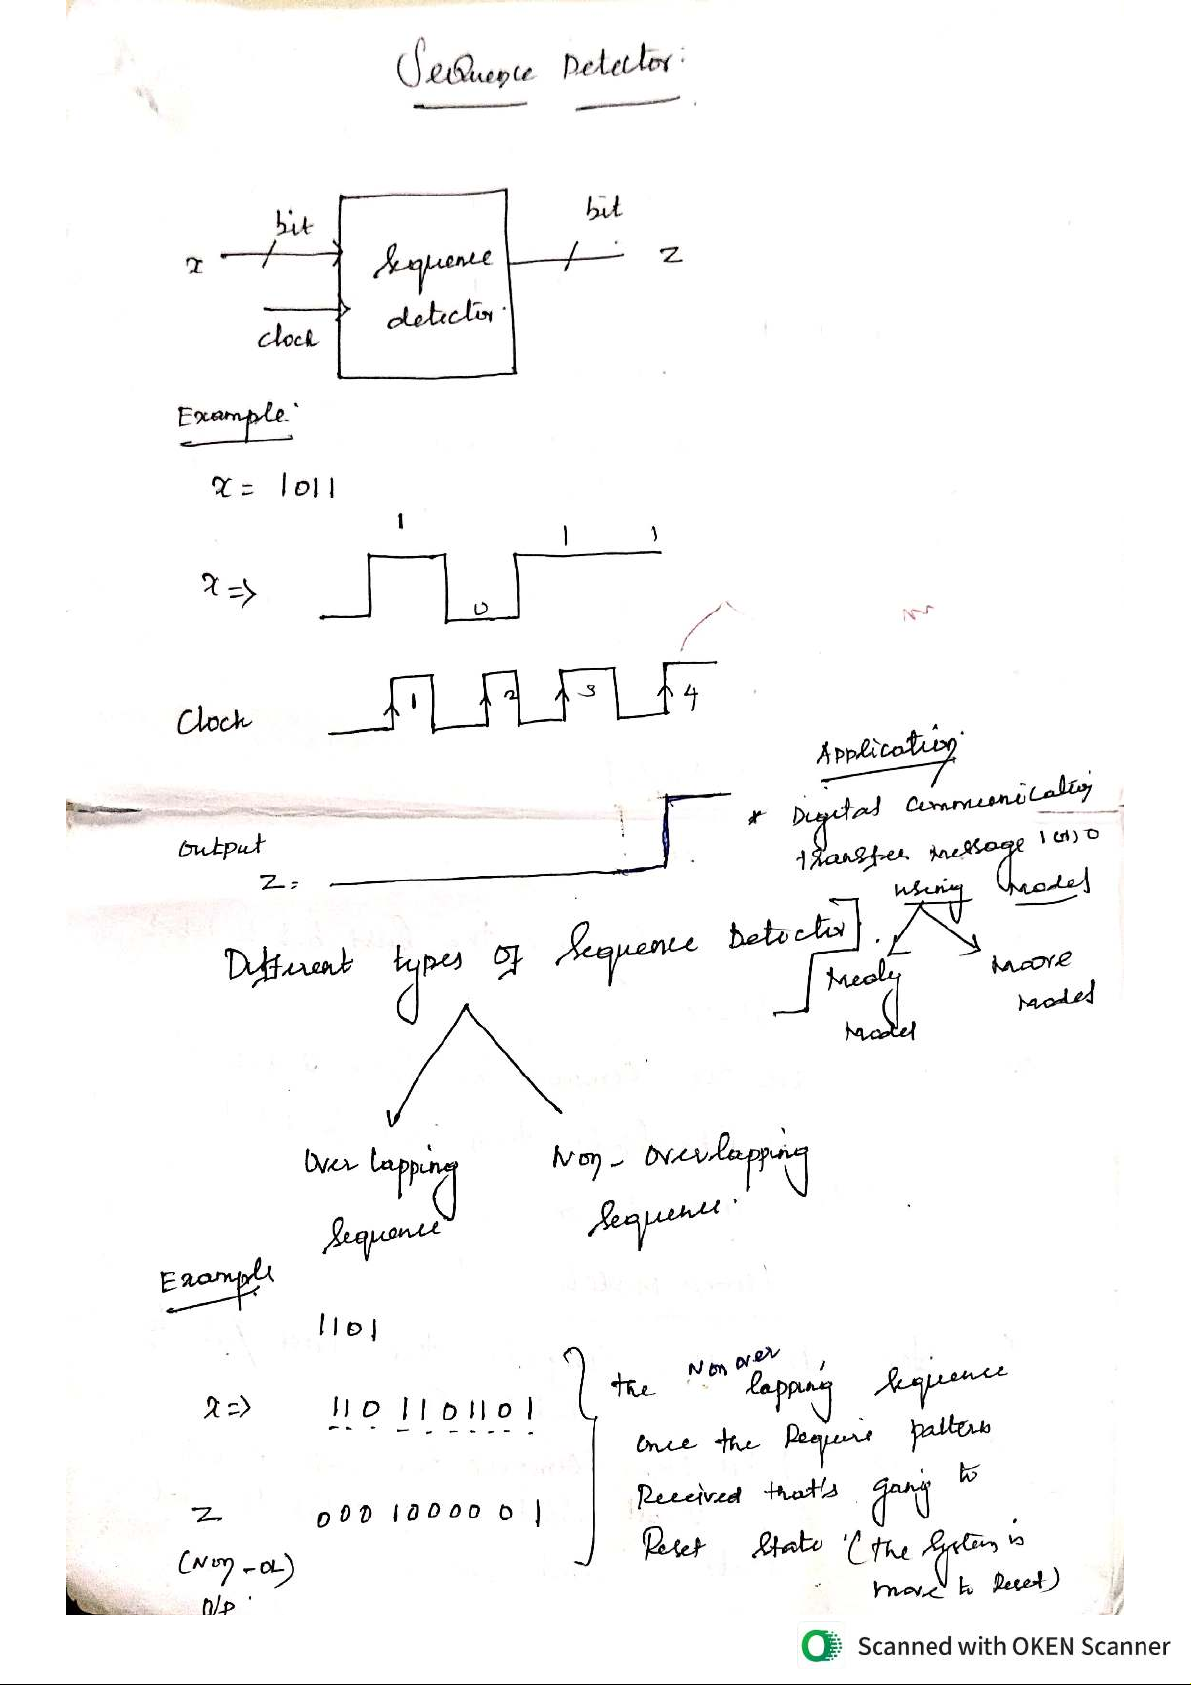 Sequence Detector:
bit
bit
x
Sequence
detector.
z
clock
Example:
x = 1011
1
1
1
x =>
0
Clock
1
2
3
4
Application:
* Digital Communication
transfer message 1 (or) 0
using Model
Mealy
Model
Moore
Model
output
Z =
Different types of Sequence Detector.
Over lapping
Sequence
Non - overlapping
Sequence.
Example
1101
x => 1101101101
Z 0001000001
(Non - OL)
O/P.
the Non over lapping sequence
once the Require pattern
Received that's going to
Reset State (the System is
move to Reset)
Scanned with OKEN Scanner